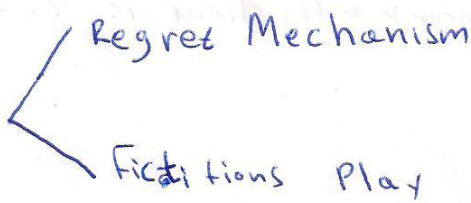 Regret Mechanism
Fictitions Play